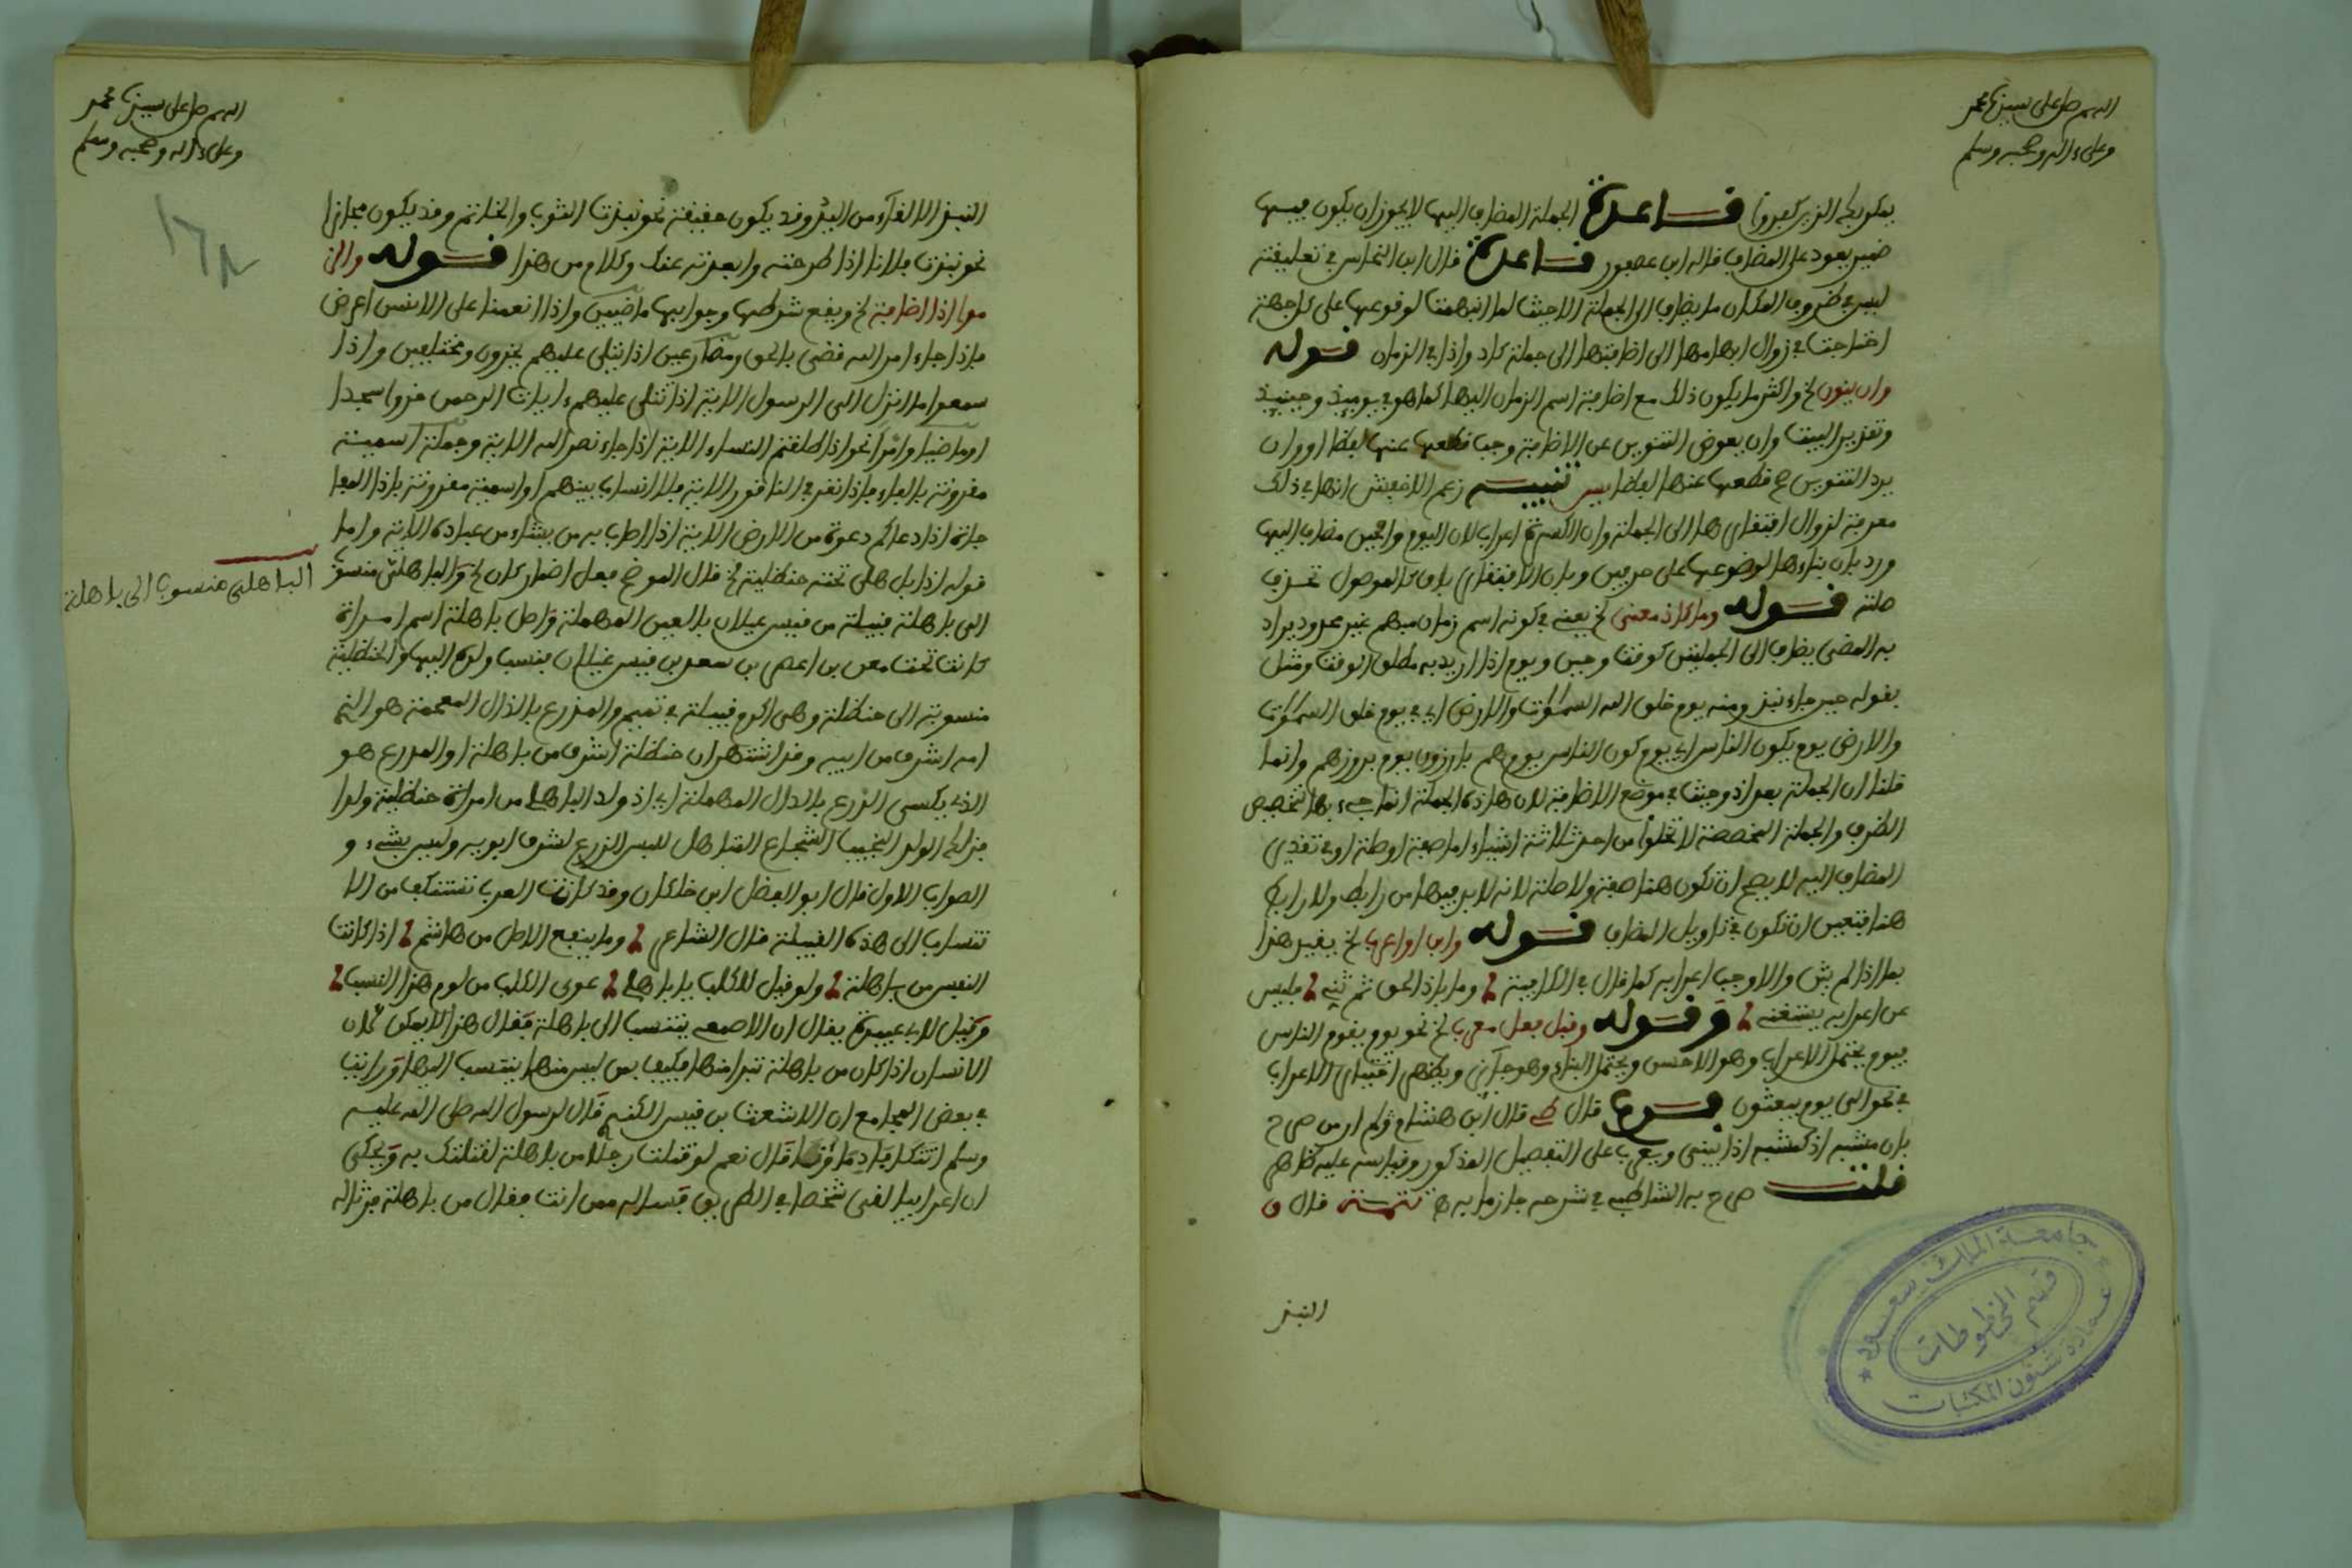 اللهم صل على سيدنا محمد
وعلى ءاله وصحبه وسلم
يمكر بك الذين كفروا قاعدة الجملة المضاف اليها لا يجوز ان يكون فيها
ضمير يعود على المضاف قاله ابن عصفور قاعدة قال ابن النحاس في تعليقته
ليس في ظروف المكان ما يضاف الى الجملة الا حيث لما ابهمت لوقوعها على كل جهة
احتاجت في زوال ابهامها الى اضافتها الى جملة كاذ واذا في الزمان قوله
وان ينون الخ واكثر ما يكون ذلك مع اضافة اسم الزمان اليها كما هو في يوميذ وحينيذ
وتقدير البيت وان يعوض التنوين عن الاضافة وجب قطعها عنها لفظا او وان
يرد التنوين مع قطعها عنها لفظا تنبيه زعم الاخفش انها في ذلك
معربة لزوال افتقارها الى الجملة وان الكسرة اعراب لان اليوم والحين مضاف اليها
ورد بان بناءها لوضعها على حرفين وبان الافتقار باق كالموصول تحذف
صلته قوله وما كاذ معنى الخ يعني في كونه اسم زمان مبهم غير محدود يراد
به المضي يضاف الى الجملتين كوقت وحين ويوم اذا اريد به مطلق الوقت ومثل
بقوله حين جاء نبذ ومنه يوم خلق الله السموات والارض اي في يوم خلق السموات
والارض يوم يكون الناس اي يوم كون الناس يوم هم بارزون يوم بروزهم وانما
قلنا ان الجملة بعد اذ وحيث في موضع الاضافة لان هاذه الجملة انما جيء بها لتخصيص
الظرف والجملة المخصصة لا تخلوا من احد ثلاثة اشياء اما صفة او صلة او في تقدير
المضاف اليه لا يصح ان تكون هنا صفة ولا صلة لانه لا بد فيها من رابط ولا رابط
هنا فتعين ان تكون في تاويل المضاف قوله وابن او اعرب الخ يغير هذا
بما اذا لم يثن والا وجب اعرابه كما قال في الكافية وما باذ الحق ثم ثني فليس
عن اعرابه يستغني وقوله وقبل فعل معرب الخ نحو يوم يقوم الناس
فيوم يحتمل الاعراب وهو الاحسن ويحتمل البناء وهو جائز ويظهر اختيار الاعراب
في نحو الى يوم يبعثون قال ابن هشام ولم ار من صرح
بان مشبه اذ كمشبه اذا يبنى ويعرب على التفصيل المذكور وقياسه عليه ظاهر
قلت صرح به الشاطبي في شرحه جازما به تتمة قال
النبذ
جامعة الملك سعود
قسم المخطوطات
عمادة شئون المكتبات
اللهم صل على سيدنا محمد
وعلى ءاله وصحبه وسلم
١٦٨
النبذ الالقاء من اليد وقد يكون حقيقة نحو نبذت الثوب والخاتم وقد يكون مجازا
نحو نبذت فلانا اذا طرحته وابعدته عنك وكلام من هذا قوله والز
موا اذا اضافة الخ ويقع شرطها وجوابها ماضيين واذا انعمنا على الانسن اعرض
فاذا جاء امر الله قضي بالحق ومضارعين اذا تتلى عليهم يخرون ومختلفين واذا
سمعوا ما انزل الى الرسول الاية اذا تتلى عليهم ءايات الرحمن خروا سجدا
او ماضيا وامرا نحو اذا طلقتم النساء الاية اذا جاء نصر الله الاية وجملة اسمية
مقرونة بالفاء فاذا نقر في الناقور الاية فلا انساب بينهم او اسمية مقرونة باذا الفجا
جاة اذا دعاكم دعوة من الارض الاية اذا اصاب به من يشاء من عباده الاية واما
قوله اذا باهلي تحته حنظلية الخ قال الموضح فعل اضمار كان الخ والباهلي منسوب
الى باهلة قبيلة من قيس عيلان بالعين المهملة واصل باهلة اسم امراة
كانت تحت معن بن اعصر بن سعد بن قيس عيلان فنسب ولده اليها والحنظلية
منسوبة الى حنظلة وهي اكرم قبيلة في تميم والمذرع بالذال المعجمة هو الذي
امه اشرف من ابيه وقد اشتهر ان حنظلة اشرف من باهلة او المدرع هو
الذي يكسى الدرع بالدال المهملة اي اذ ولد الباهلي من امراة حنظلية ولدا
فذلك الولد النجيب الشجاع القتال هل للبس الدرع لشرف ابويه وليس بشيء و
الصواب الاول قال ابو الفضل ابن خلكان وقد كانت العرب تستنكف من الا
نتساب الى هذه القبيلة قال الشاعر وما ينفع الاصل من هاشم اذا كانت
النفس من باهلة ولو قيل للكلب يا باهلي عوى الكلب من لوم هذا النسب
وقيل لابي عبيدة يقال ان الاصمعي ينتسب الى باهلة فقال هذا لا يمكن لان
الانسان اذا كان من باهلة تبرا منها فكيف بمن ليس منها ينتسب اليها ورايت
في بعض المجامع ان الاشعث بن قيس الكندي قال لرسول الله صلى الله عليه
وسلم اتتكافا دماؤنا قال نعم لو قتلت رجلا من باهلة لقتلتك به ويحكى
ان اعرابيا لقي شخصا في الطريق فساله ممن انت فقال من باهلة فرثا له
الباهلي منسوب الى باهلة